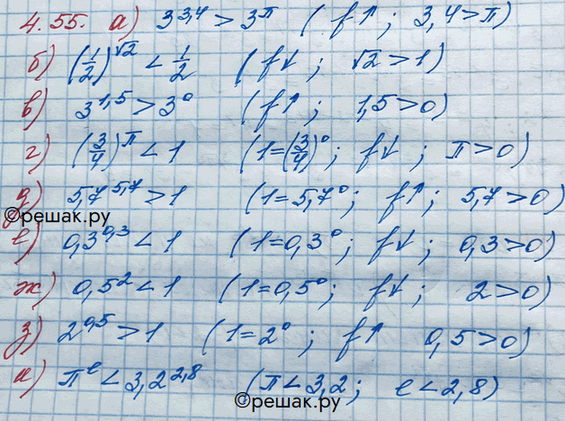 4.55. а) 3^3,4 > 3^π ( f↑ ; 3,4 > π)
б) (1/2)^√2 < 1/2 ( f↓ ; √2 > 1)
в) 3^1,5 > 3^0 ( f↑ ; 1,5 > 0)
г) (3/4)^π < 1 (1 = (3/4)^0 ; f↓ ; π > 0)
д) 5,7^5,7 > 1 (1 = 5,7^0 ; f↑ ; 5,7 > 0)
©решак.ру
е) 0,3^0,3 < 1 (1 = 0,3^0 ; f↓ ; 0,3 > 0)
ж) 0,5^2 < 1 (1 = 0,5^0 ; f↓ ; 2 > 0)
з) 2^0,5 > 1 (1 = 2^0 ; f↑ 0,5 > 0)
и) π^e < 3,2^2,8 (π < 3,2 ; e < 2,8)
©решак.ру